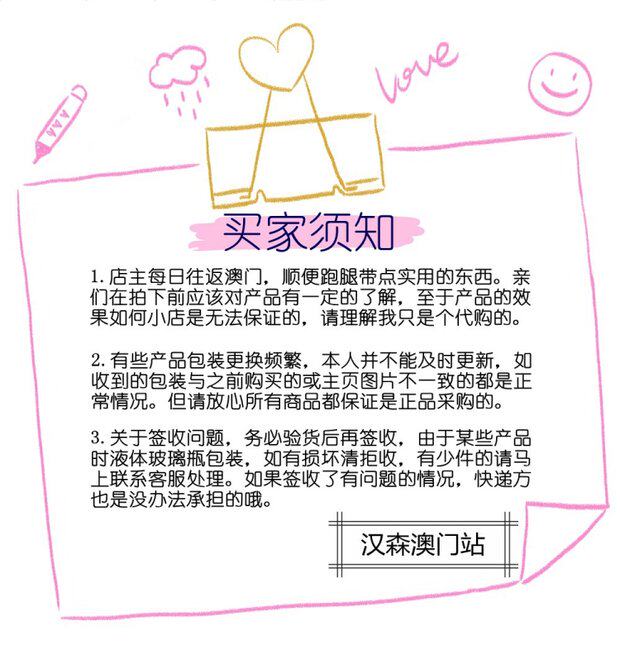 love
买家须知
1. 店主每日往返澳门，顺便跑腿带点实用的东西。亲
们在拍下前应该对产品有一定的了解，至于产品的效
果如何小店是无法保证的，请理解我只是个代购的。
2. 有些产品包装更换频繁，本人并不能及时更新，如
收到的包装与之前购买的或主页图片不一致的都是正
常情况。但请放心所有商品都保证是正品采购的。
3. 关于签收问题，务必验货后再签收，由于某些产品
时液体玻璃瓶包装，如有损坏清拒收，有少件的请马
上联系客服处理。如果签收了有问题的情况，快递方
也是没办法承担的哦。
汉森澳门站